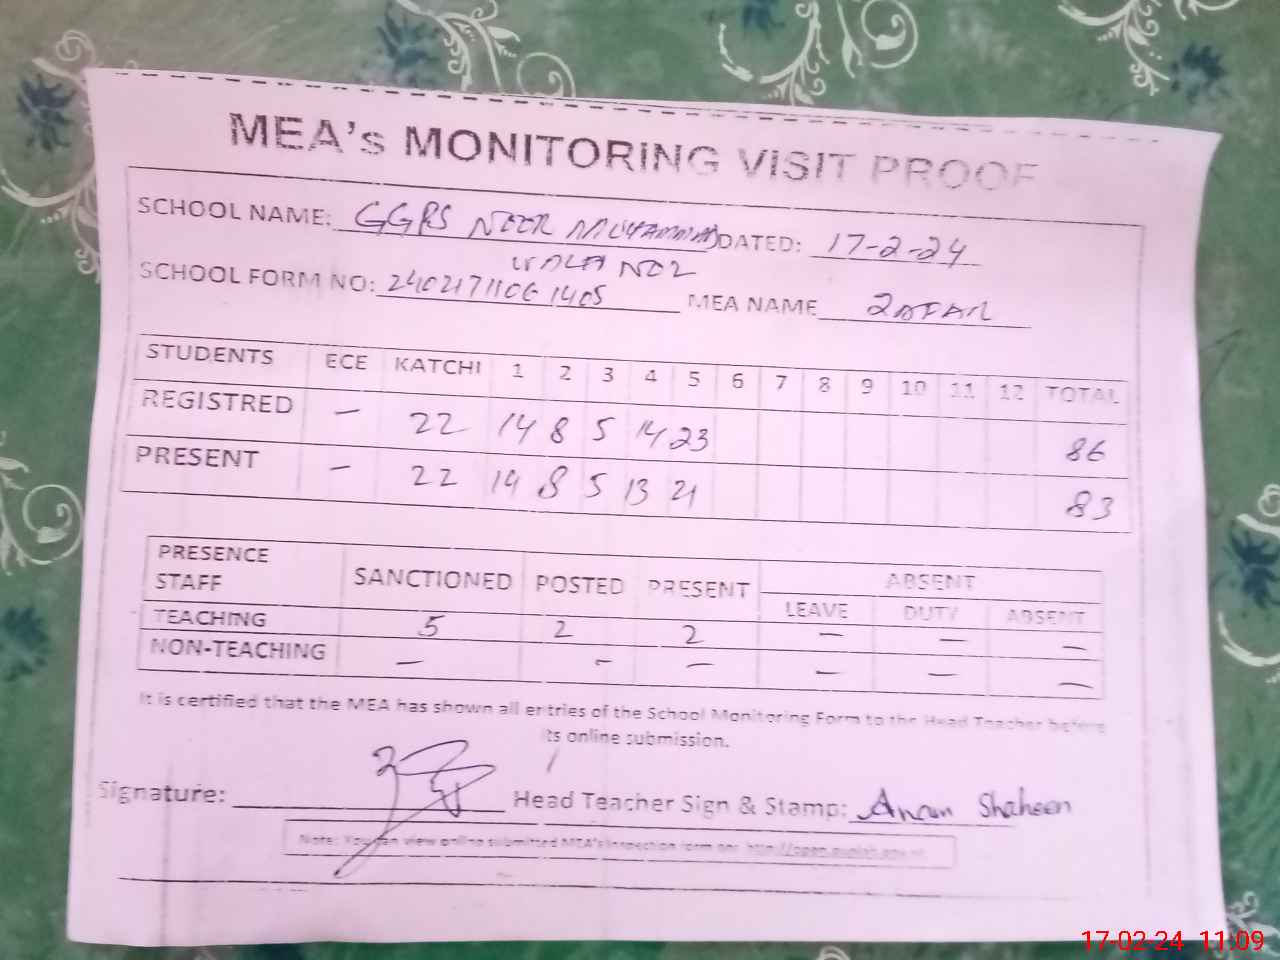 MEA's MONITORING VISIT PROOF
SCHOOL NAME: GGPS NOOR MUHAMMAD DATED: 17-2-24
WALA NO2
SCHOOL FORM NO: MEA NAME ZAFAR
STUDENTS ECE KATCHI 1 2 3 4 5 6 7 8 9 10 11 12 TOTAL
REGISTRED — 22 14 8 5 14 23 86
PRESENT — 22 14 8 5 13 21 83
PRESENCE STAFF SANCTIONED POSTED PRESENT ABSENT
LEAVE DUTY ABSENT
TEACHING 5 2 2 — — —
NON-TEACHING — - — — — —
It is certified that the MEA has shown all entries of the School Monitoring Form to the Head Teacher before
its online submission.
Signature: Head Teacher Sign & Stamp: Anam Shaheen
Note: You can view online submitted MEA's inspection form on:
17-02-24 11:09